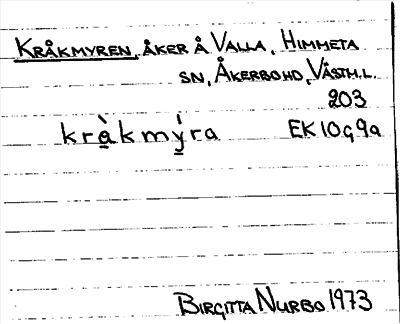 KRÅKMYREN, ÅKER Å VALLA, HIMMETA
SN, ÅKERBO HD, VÄSTM.L.
203
kràkmýra EK 10g9a
BIRGITTA NURBO 1973